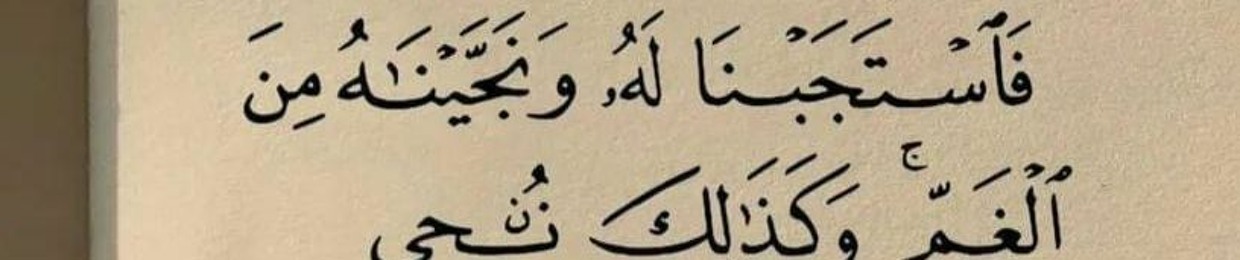 فَٱسْتَجَبْنَا لَهُۥ وَنَجَّيْنَٰهُ مِنَ
ٱلْغَمِّ ۚ وَكَذَٰلِكَ نُۨجِى